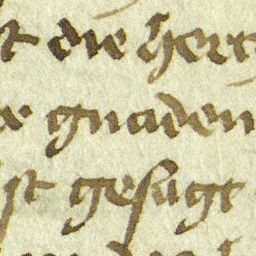 t die herr
gnaden
ist gesagt